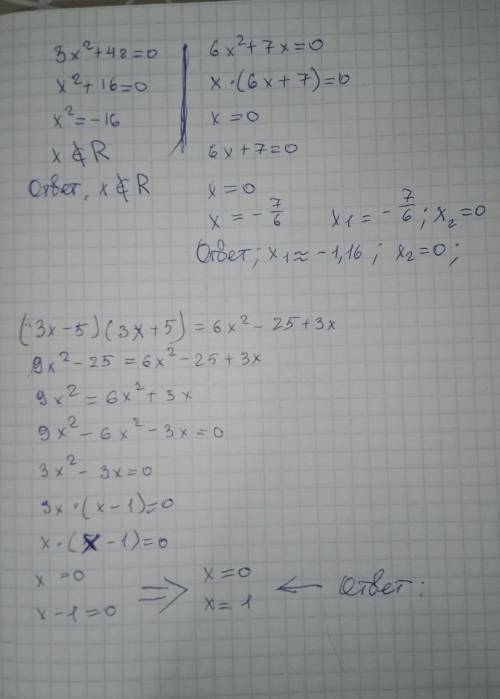 3x²+48=0
x²+16=0
x²=-16
x∉R
Ответ, x∉R
6x²+7x=0
x·(6x+7)=0
x=0
6x+7=0
x=0
x=-7/6 x1=-7/6; x2=0
Ответ; x1≈-1,16; x2=0;
(3x-5)(3x+5)=6x²-25+3x
9x²-25=6x²-25+3x
9x²=6x²+3x
9x²-6x²-3x=0
3x²-3x=0
3x·(x-1)=0
x·(x-1)=0
x=0 ⇒ x=0 ← Ответ:
x-1=0 x=1